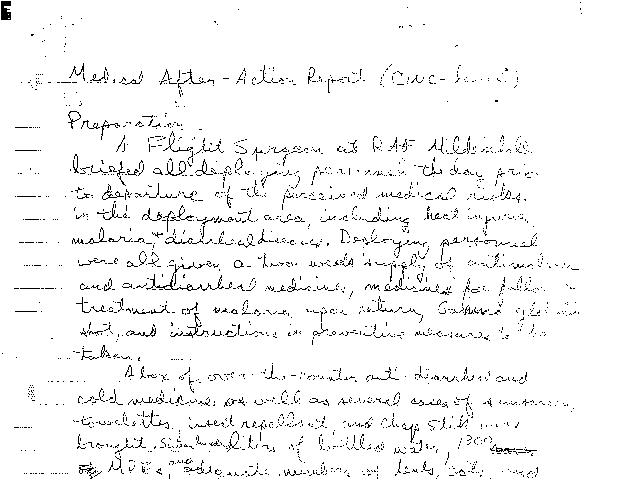 Medical After-Action Report
Preparation
A Flight Surgeon at RAF Mildenhall
briefed all deploying personnel the day prior
to departure of the perceived medical risks
in the deployment area, including heat injuries,
malaria, + diarrheal disease. Deploying personnel
were all given a two weeks supply of antimalarial
and antidiarrheal medicines, medicines for follow
treatment of malaria upon return, Gamma glob
shot, and instructions in preventive measures to be
taken.
A box of over-the-counter anti-diarrheal and
cold medicines as well as several cases of
towelettes, insect repellent, and Chap Stick were
brought. liters of bottled water, 1300
of MREs, and adequate numbers of tents, cots, and